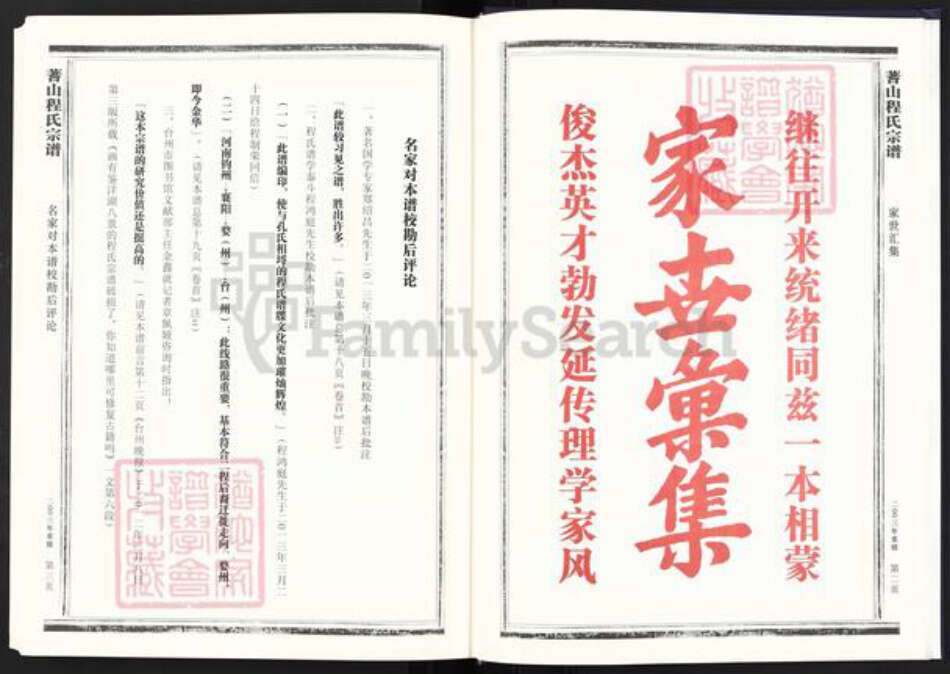 箐山程氏宗谱
家世汇集
二〇〇三年重辑
第二页
继往开来统绪同兹一本相蒙
家世彙集
俊杰英才勃发延传理学家风
名家对本谱校勘后评论
一、著名国学专家郑绍昌先生于二〇一三年三月十五日晚校勘本谱后批注
“此谱较习见之谱，胜出许多。”（请见本谱总第十八页《卷首》注）
二、程氏谱学泰斗程鸿庭先生校勘本谱后批注
（一）“此谱编印，使与孔氏相埒的程氏谱牒文化更加璀灿辉煌。”（程鸿庭先生于二〇一三年三月二
十四日给程制荣回信）
（二）“河南钧州—襄阳—婺（州）—台（州）：此线路很重要，基本符合二程后裔迁徙走向。婺州，
即今金华”。（请见本谱总第十九页《卷首》注）
三、台州市图书馆文献部主任金鑫就记者章佩敏咨询时指出：
“这本宗谱的研究价值还是挺高的。”（请见本谱前言第十二页《台州晚报》二〇一二年
第三版所载《画有鉴洋湖八景的程氏宗谱破损了，你知道哪里可修复古籍吗》一文第六段）
箐山程氏宗谱
名家对本谱校勘后评论
二〇〇三年重辑
第三页
FamilySearch